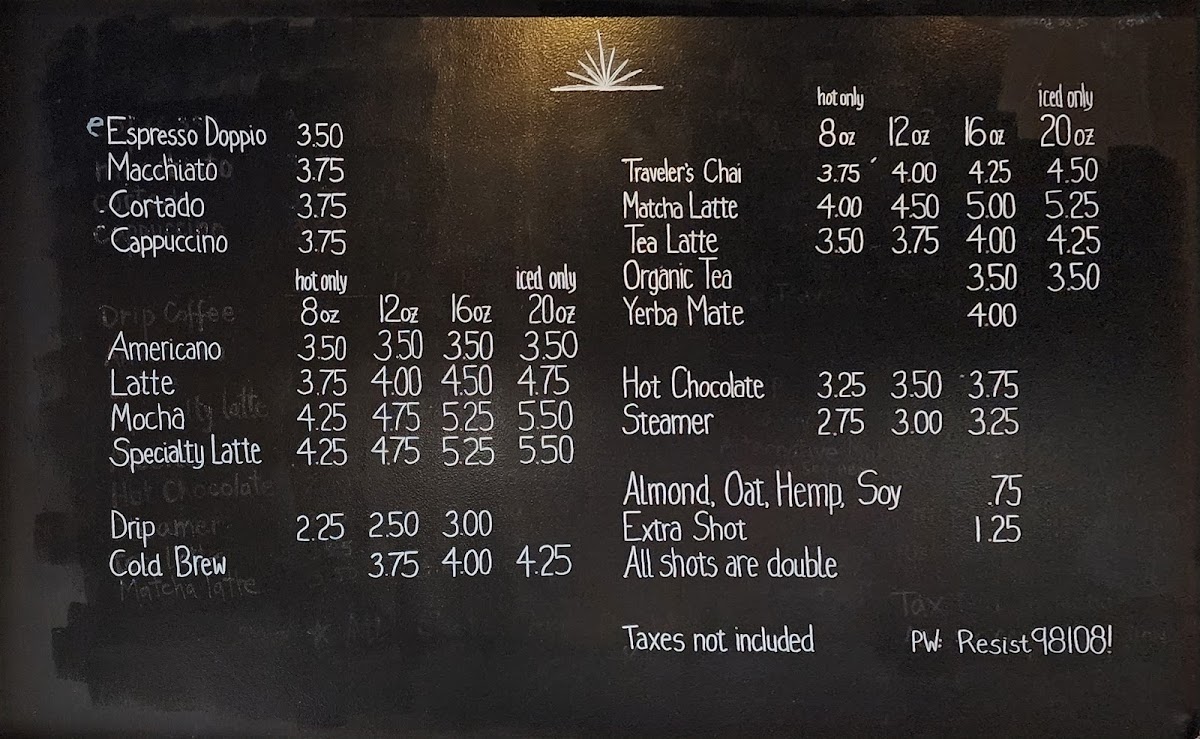 Espresso Doppio 3.50
Macchiato 3.75
Cortado 3.75
Cappuccino 3.75
hot only iced only
8oz 12oz 16oz 20oz
Americano 3.50 3.50 3.50 3.50
Latte 3.75 4.00 4.50 4.75
Mocha 4.25 4.75 5.25 5.50
Specialty Latte 4.25 4.75 5.25 5.50
Drip 2.25 2.50 3.00
Cold Brew 3.75 4.00 4.25
hot only iced only
8oz 12oz 16oz 20oz
Traveler's Chai 3.75 4.00 4.25 4.50
Matcha Latte 4.00 4.50 5.00 5.25
Tea Latte 3.50 3.75 4.00 4.25
Organic Tea 3.50 3.50
Yerba Mate 4.00
Hot Chocolate 3.25 3.50 3.75
Steamer 2.75 3.00 3.25
Almond, Oat, Hemp, Soy .75
Extra Shot 1.25
All shots are double
Taxes not included PW: Resist98108!
Drip Coffee
Hot Chocolate
Matcha latte
Tax